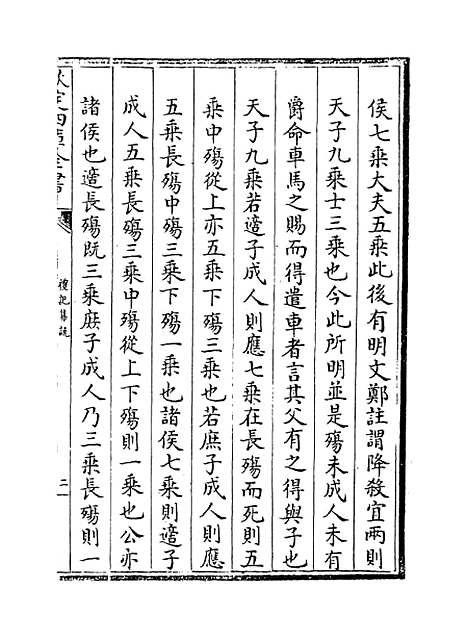 侯七乘大夫五乘此後有明文鄭註謂降殺宜兩則
天子九乘士三乘也今此所明並是殤未成人未有
爵命車馬之賜而得遣車者言其父有之得與子也
天子九乘若適子成人則應七乘在長殤而死則五
乘中殤從上亦五乘下殤三乘也若庶子成人則應
五乘長殤中殤三乘下殤一乘也諸侯七乘則適子
成人五乘長殤三乘中殤從上下殤則一乘也公亦
諸侯也適長殤既三乘庶子成人乃三乘長殤則一
欽定四庫全書
禮記集說
二